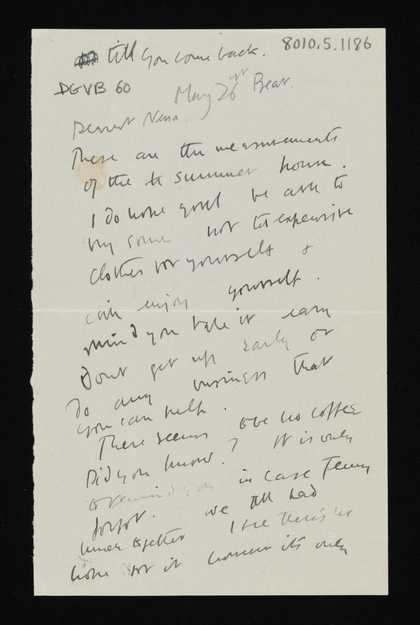 till you come back.
8010.5.1186
DGVB 60
May 26 Bear
Dearest Nessa
These are the measurements
of the summer house.
I do hope you'll be able to
buy some not too expensive
clothes for yourself &
can enjoy yourself.
mind you take it easy
Dont get up early or
do any business that
you can help.
There seems to be no coffee
Did you know? It is only
in case Jenny
forgot. we all had
lunch together I see there's no
hope for it however its only